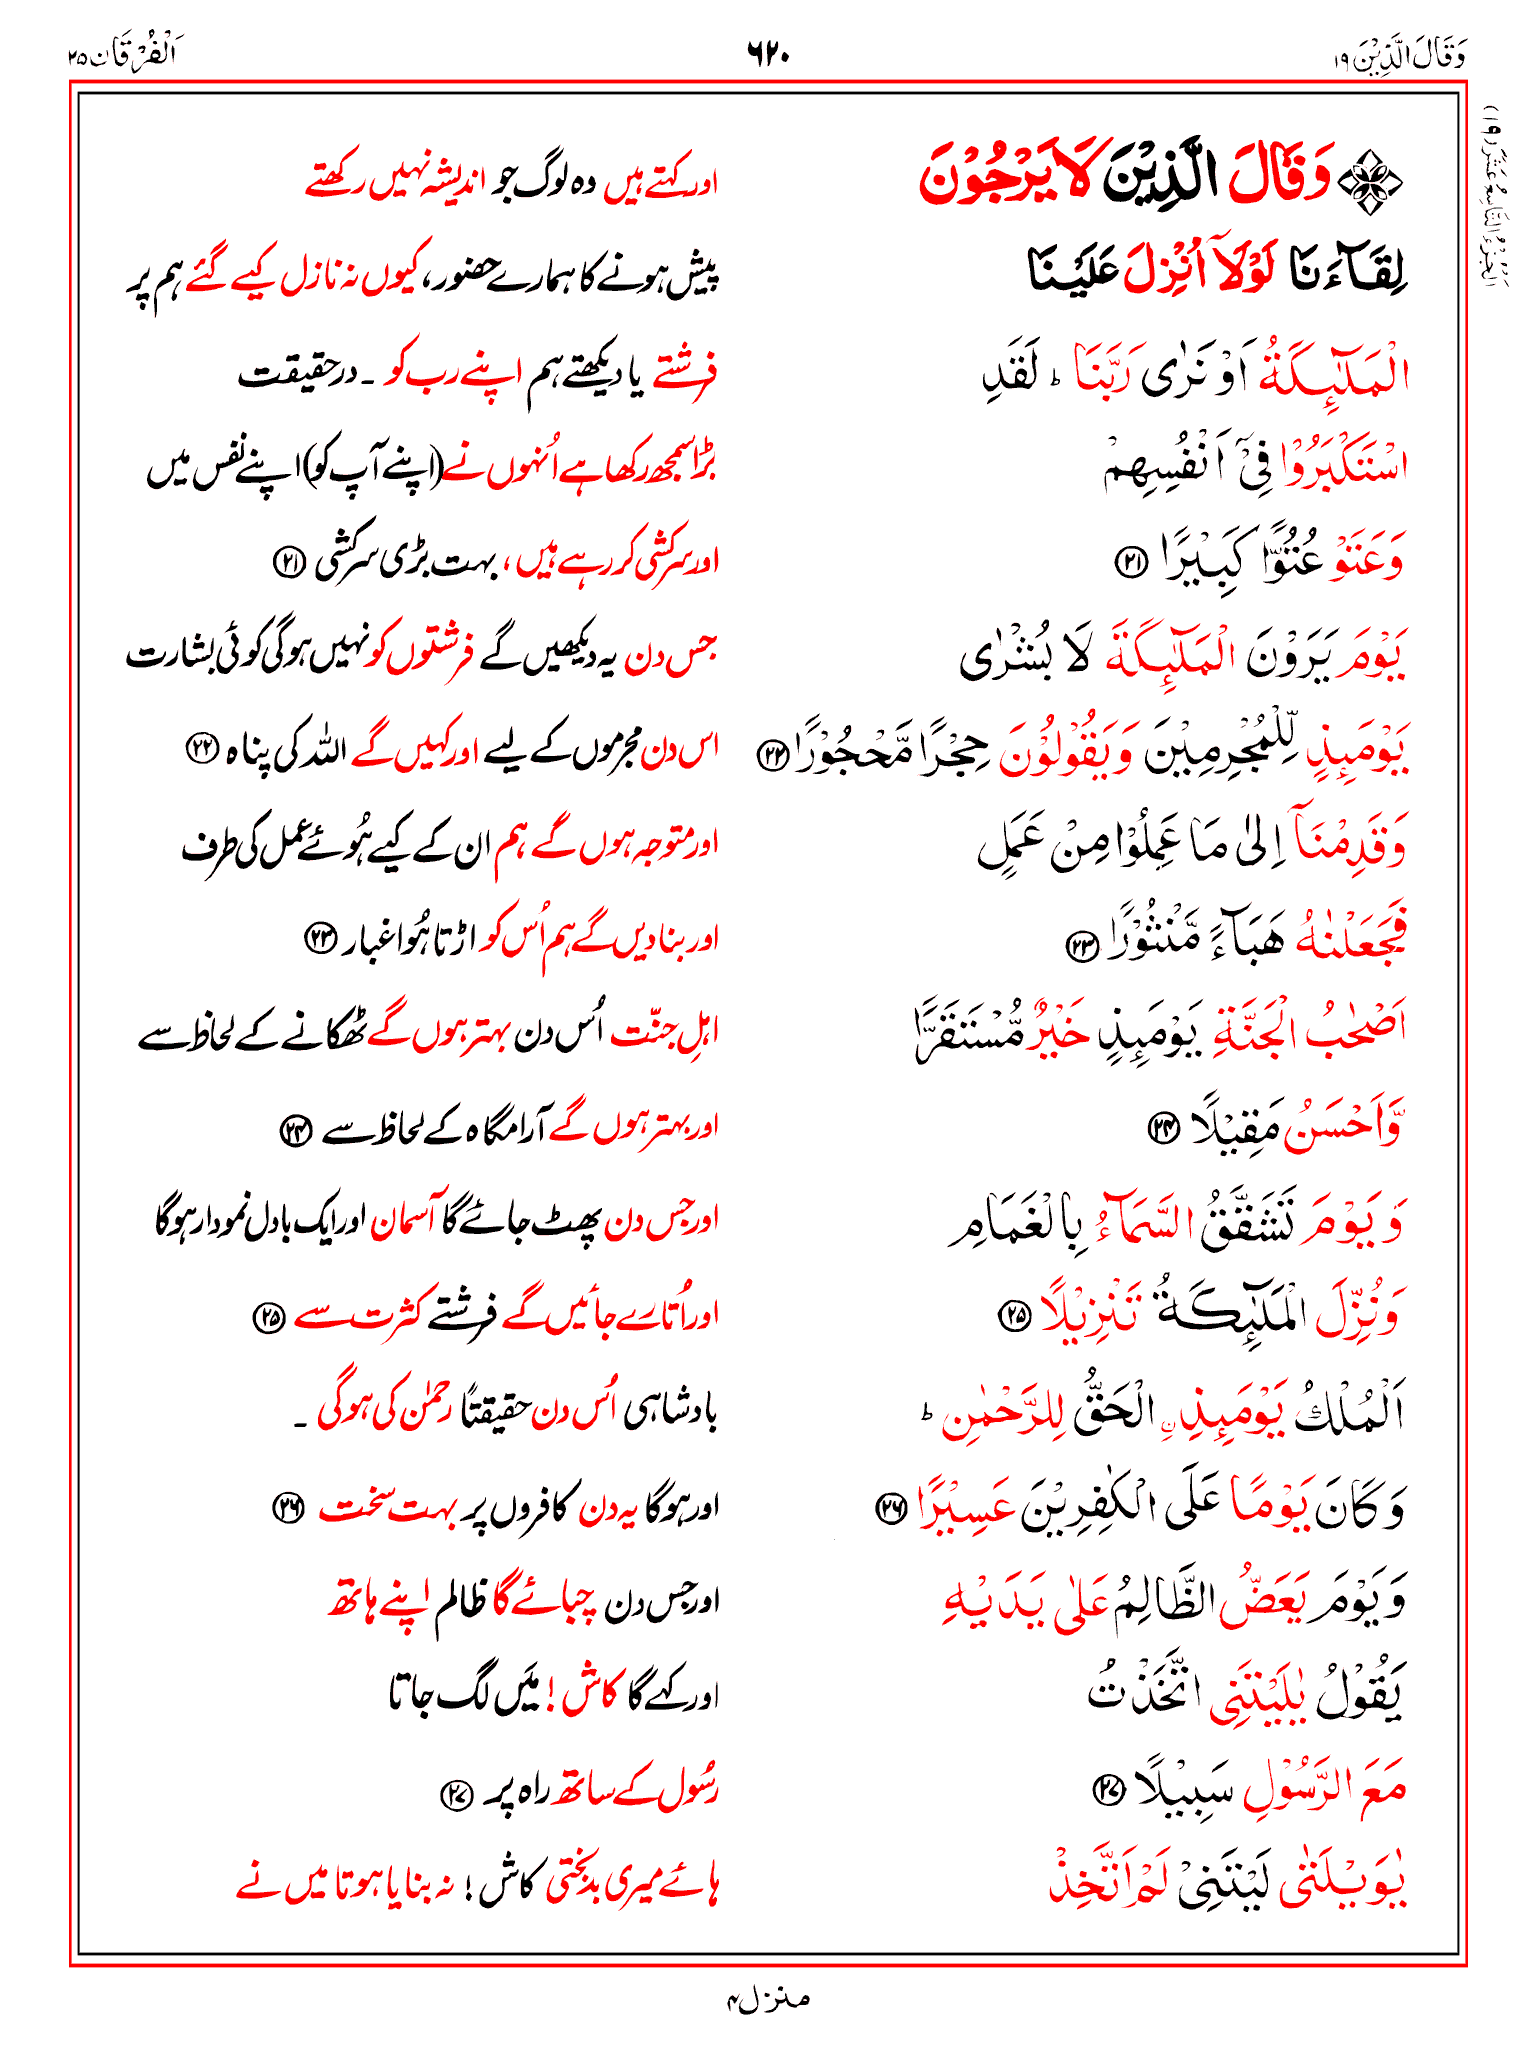 وَقَالَ الَّذِیْنَ ۱۹
۶۲۰
اَلْفُرْقَان ۲۵
اَلْجُزْءُ التَّاسِعُ عَشَرَ (۱۹)
وَقَالَ الَّذِیْنَ لَا یَرْجُوْنَ
اور کہتے ہیں وہ لوگ جو اندیشہ نہیں رکھتے
لِقَآءَنَا لَوْلَآ اُنْزِلَ عَلَیْنَا
پیش ہونے کا ہمارے حضور، کیوں نہ نازل کیے گئے ہم پر
الْمَلٰٓئِكَةُ اَوْ نَرٰی رَبَّنَا ؕ لَقَدِ
فرشتے یا دیکھتے ہم اپنے رب کو ۔ درحقیقت
اسْتَكْبَرُوْا فِیْۤ اَنْفُسِهِمْ
بڑا سمجھ رکھا ہے اُنہوں نے (اپنے آپ کو) اپنے نفس میں
وَعَتَوْ عُتُوًّا كَبِیْرًا ۲۱
اور سرکشی کر رہے ہیں، بہت بڑی سرکشی ۲۱
یَوْمَ یَرَوْنَ الْمَلٰٓئِكَةَ لَا بُشْرٰی
جس دن یہ دیکھیں گے فرشتوں کو نہیں ہوگی کوئی بشارت
یَوْمَىِٕذٍ لِّلْمُجْرِمِیْنَ وَیَقُوْلُوْنَ حِجْرًا مَّحْجُوْرًا ۲۲
اس دن مجرموں کے لیے اور کہیں گے اللہ کی پناہ ۲۲
وَقَدِمْنَاۤ اِلٰی مَا عَمِلُوْا مِنْ عَمَلٍ
اور متوجہ ہوں گے ہم ان کے کیے ہُوئے عمل کی طرف
فَجَعَلْنٰهُ هَبَآءً مَّنْثُوْرًا ۲۳
اور بنا دیں گے ہم اُس کو اڑتا ہُوا غبار ۲۳
اَصْحٰبُ الْجَنَّةِ یَوْمَىِٕذٍ خَیْرٌ مُّسْتَقَرًّا
اہلِ جنّت اُس دن بہتر ہوں گے ٹھکانے کے لحاظ سے
وَّاَحْسَنُ مَقِیْلًا ۲۴
اور بہتر ہوں گے آرامگاہ کے لحاظ سے ۲۴
وَیَوْمَ تَشَقَّقُ السَّمَآءُ بِالْغَمَامِ
اور جس دن پھٹ جائے گا آسمان اور ایک بادل نمودار ہوگا
وَنُزِّلَ الْمَلٰٓئِكَةُ تَنْزِیْلًا ۲۵
اور اُتارے جائیں گے فرشتے کثرت سے ۲۵
اَلْمُلْكُ یَوْمَىِٕذِ ِ۟الْحَقُّ لِلرَّحْمٰنِ ؕ
بادشاہی اُس دن حقیقتاً رحمٰن کی ہوگی ۔
وَكَانَ یَوْمًا عَلَی الْكٰفِرِیْنَ عَسِیْرًا ۲۶
اور ہوگا یہ دن کافروں پر بہت سخت ۲۶
وَیَوْمَ یَعَضُّ الظَّالِمُ عَلٰی یَدَیْهِ
اور جس دن چبائے گا ظالم اپنے ہاتھ
یَقُوْلُ یٰلَیْتَنِی اتَّخَذْتُ
اور کہے گا کاش! مَیں لگ جاتا
مَعَ الرَّسُوْلِ سَبِیْلًا ۲۷
رسُول کے ساتھ راہ پر ۲۷
یٰوَیْلَتٰی لَیْتَنِیْ لَمْ اَتَّخِذْ
ہائے میری بدبختی کاش! نہ بنایا ہوتا میں نے
منزل ۴